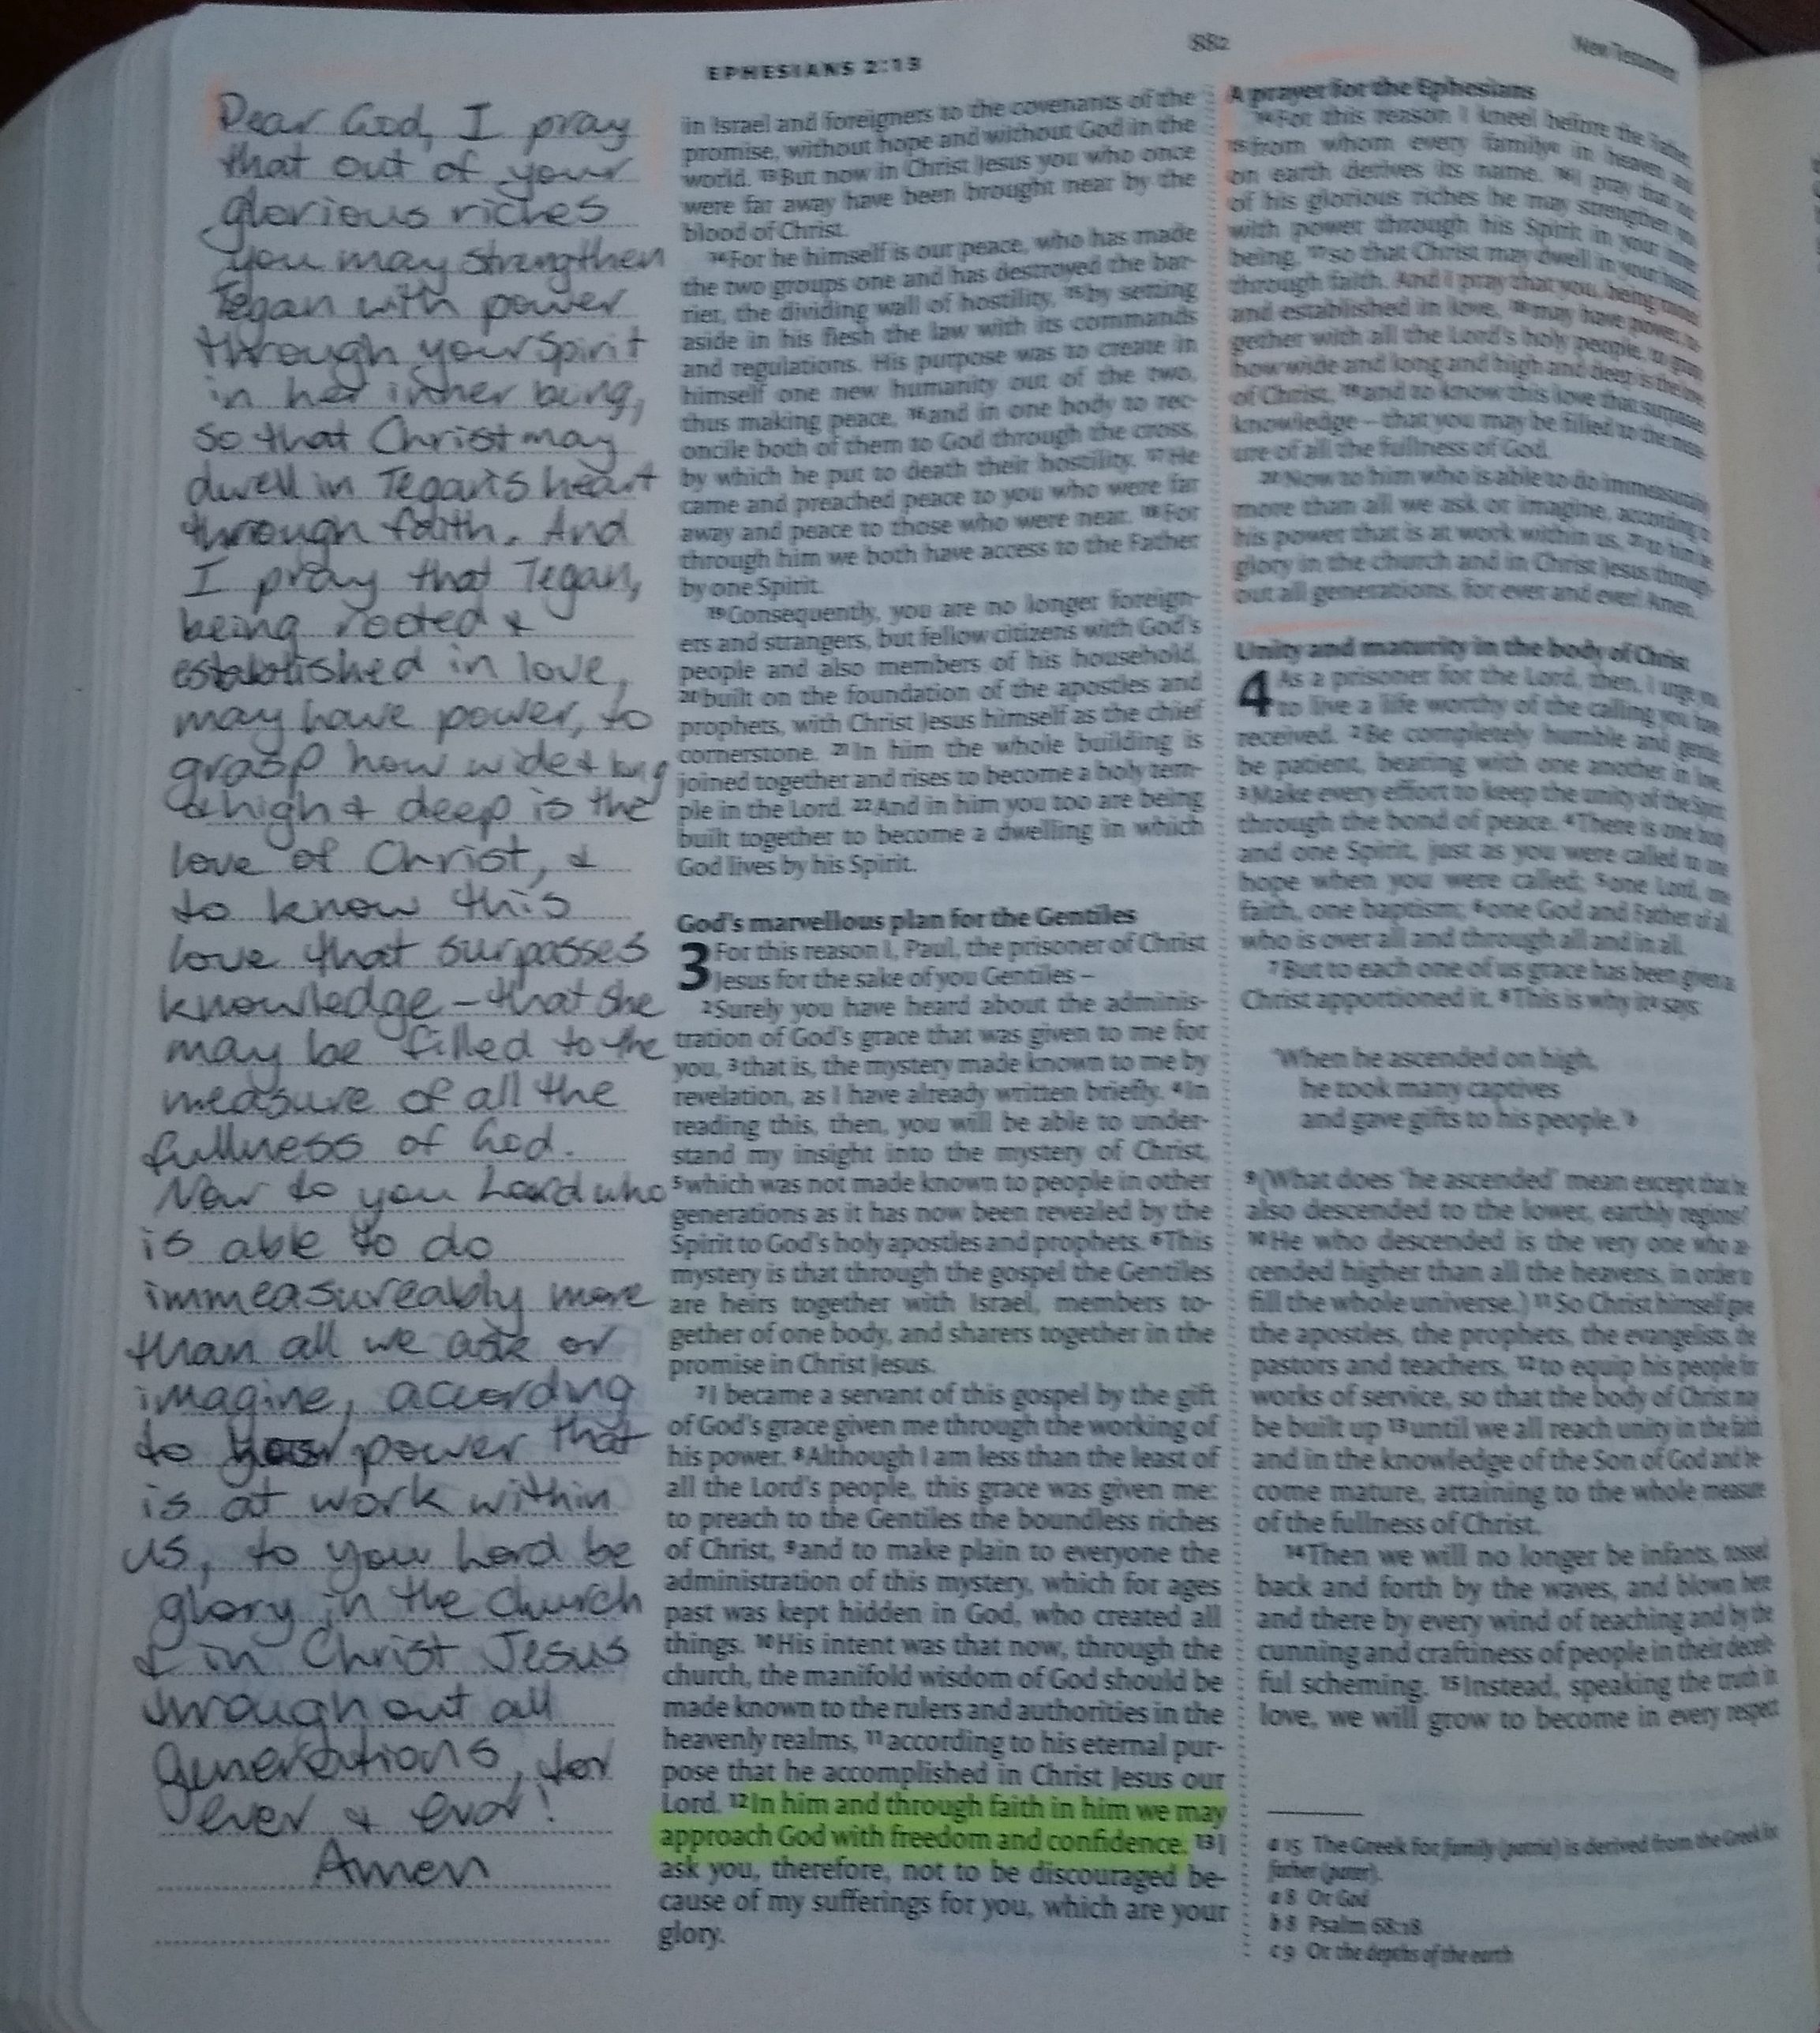 EPHESIANS 2:13
882
New Testament
Dear God, I pray
that out of your
glorious riches
you may strengthen
Tegan with power
through your Spirit
in her inner being,
so that Christ may
dwell in Tegan's heart
through faith. And
I pray that Tegan,
being rooted &
established in love,
may have power, to
grasp how wide & long
& high & deep is the
love of Christ, &
to know this
love that surpasses
knowledge - that she
may be filled to the
measure of all the
fullness of God.
Now to you Lord who
is able to do
immeasureably more
than all we ask or
imagine, according
to your power that
is at work within
us, to you Lord be
glory in the church
& in Christ Jesus
through out all
generations, for
ever & ever!
Amen
in Israel and foreigners to the covenants of the
promise, without hope and without God in the
world. 13 But now in Christ Jesus you who once
were far away have been brought near by the
blood of Christ.
14 For he himself is our peace, who has made
the two groups one and has destroyed the bar-
rier, the dividing wall of hostility, 15 by setting
aside in his flesh the law with its commands
and regulations. His purpose was to create in
himself one new humanity out of the two,
thus making peace, 16 and in one body to rec-
oncile both of them to God through the cross,
by which he put to death their hostility. 17 He
came and preached peace to you who were far
away and peace to those who were near. 18 For
through him we both have access to the Father
by one Spirit.
19 Consequently, you are no longer foreign-
ers and strangers, but fellow citizens with God's
people and also members of his household,
20 built on the foundation of the apostles and
prophets, with Christ Jesus himself as the chief
cornerstone. 21 In him the whole building is
joined together and rises to become a holy tem-
ple in the Lord. 22 And in him you too are being
built together to become a dwelling in which
God lives by his Spirit.
God's marvellous plan for the Gentiles
3 For this reason I, Paul, the prisoner of Christ
Jesus for the sake of you Gentiles –
2 Surely you have heard about the adminis-
tration of God's grace that was given to me for
you, 3 that is, the mystery made known to me by
revelation, as I have already written briefly. 4 In
reading this, then, you will be able to under-
stand my insight into the mystery of Christ,
5 which was not made known to people in other
generations as it has now been revealed by the
Spirit to God's holy apostles and prophets. 6 This
mystery is that through the gospel the Gentiles
are heirs together with Israel, members to-
gether of one body, and sharers together in the
promise in Christ Jesus.
7 I became a servant of this gospel by the gift
of God's grace given me through the working of
his power. 8 Although I am less than the least of
all the Lord's people, this grace was given me:
to preach to the Gentiles the boundless riches
of Christ, 9 and to make plain to everyone the
administration of this mystery, which for ages
past was kept hidden in God, who created all
things. 10 His intent was that now, through the
church, the manifold wisdom of God should be
made known to the rulers and authorities in the
heavenly realms, 11 according to his eternal pur-
pose that he accomplished in Christ Jesus our
Lord. 12 In him and through faith in him we may
approach God with freedom and confidence. 13 I
ask you, therefore, not to be discouraged be-
cause of my sufferings for you, which are your
glory.
A prayer for the Ephesians
14 For this reason I kneel before the Father,
15 from whom every family a in heaven and
on earth derives its name. 16 I pray that out
of his glorious riches he may strengthen you
with power through his Spirit in your inner
being, 17 so that Christ may dwell in your hearts
through faith. And I pray that you, being rooted
and established in love, 18 may have power, to-
gether with all the Lord's holy people, to grasp
how wide and long and high and deep is the love
of Christ, 19 and to know this love that surpasses
knowledge – that you may be filled to the meas-
ure of all the fullness of God.
20 Now to him who is able to do immeasurably
more than all we ask or imagine, according to
his power that is at work within us, 21 to him be
glory in the church and in Christ Jesus through-
out all generations, for ever and ever! Amen.
Unity and maturity in the body of Christ
4 As a prisoner for the Lord, then, I urge you
to live a life worthy of the calling you have
received. 2 Be completely humble and gentle;
be patient, bearing with one another in love.
3 Make every effort to keep the unity of the Spirit
through the bond of peace. 4 There is one body
and one Spirit, just as you were called to one
hope when you were called; 5 one Lord, one
faith, one baptism; 6 one God and Father of all,
who is over all and through all and in all.
7 But to each one of us grace has been given as
Christ apportioned it. 8 This is why it a says:
'When he ascended on high,
he took many captives
and gave gifts to his people.' b
9 (What does 'he ascended' mean except that he
also descended to the lower, earthly regions c?
10 He who descended is the very one who as-
cended higher than all the heavens, in order to
fill the whole universe.) 11 So Christ himself gave
the apostles, the prophets, the evangelists, the
pastors and teachers, 12 to equip his people for
works of service, so that the body of Christ may
be built up 13 until we all reach unity in the faith
and in the knowledge of the Son of God and be-
come mature, attaining to the whole measure
of the fullness of Christ.
14 Then we will no longer be infants, tossed
back and forth by the waves, and blown here
and there by every wind of teaching and by the
cunning and craftiness of people in their deceit-
ful scheming. 15 Instead, speaking the truth in
love, we will grow to become in every respect
a 15 The Greek for family (patria) is derived from the Greek for
father (pater).
a 8 Or God
b 8 Psalm 68:18
c 9 Or the depths of the earth